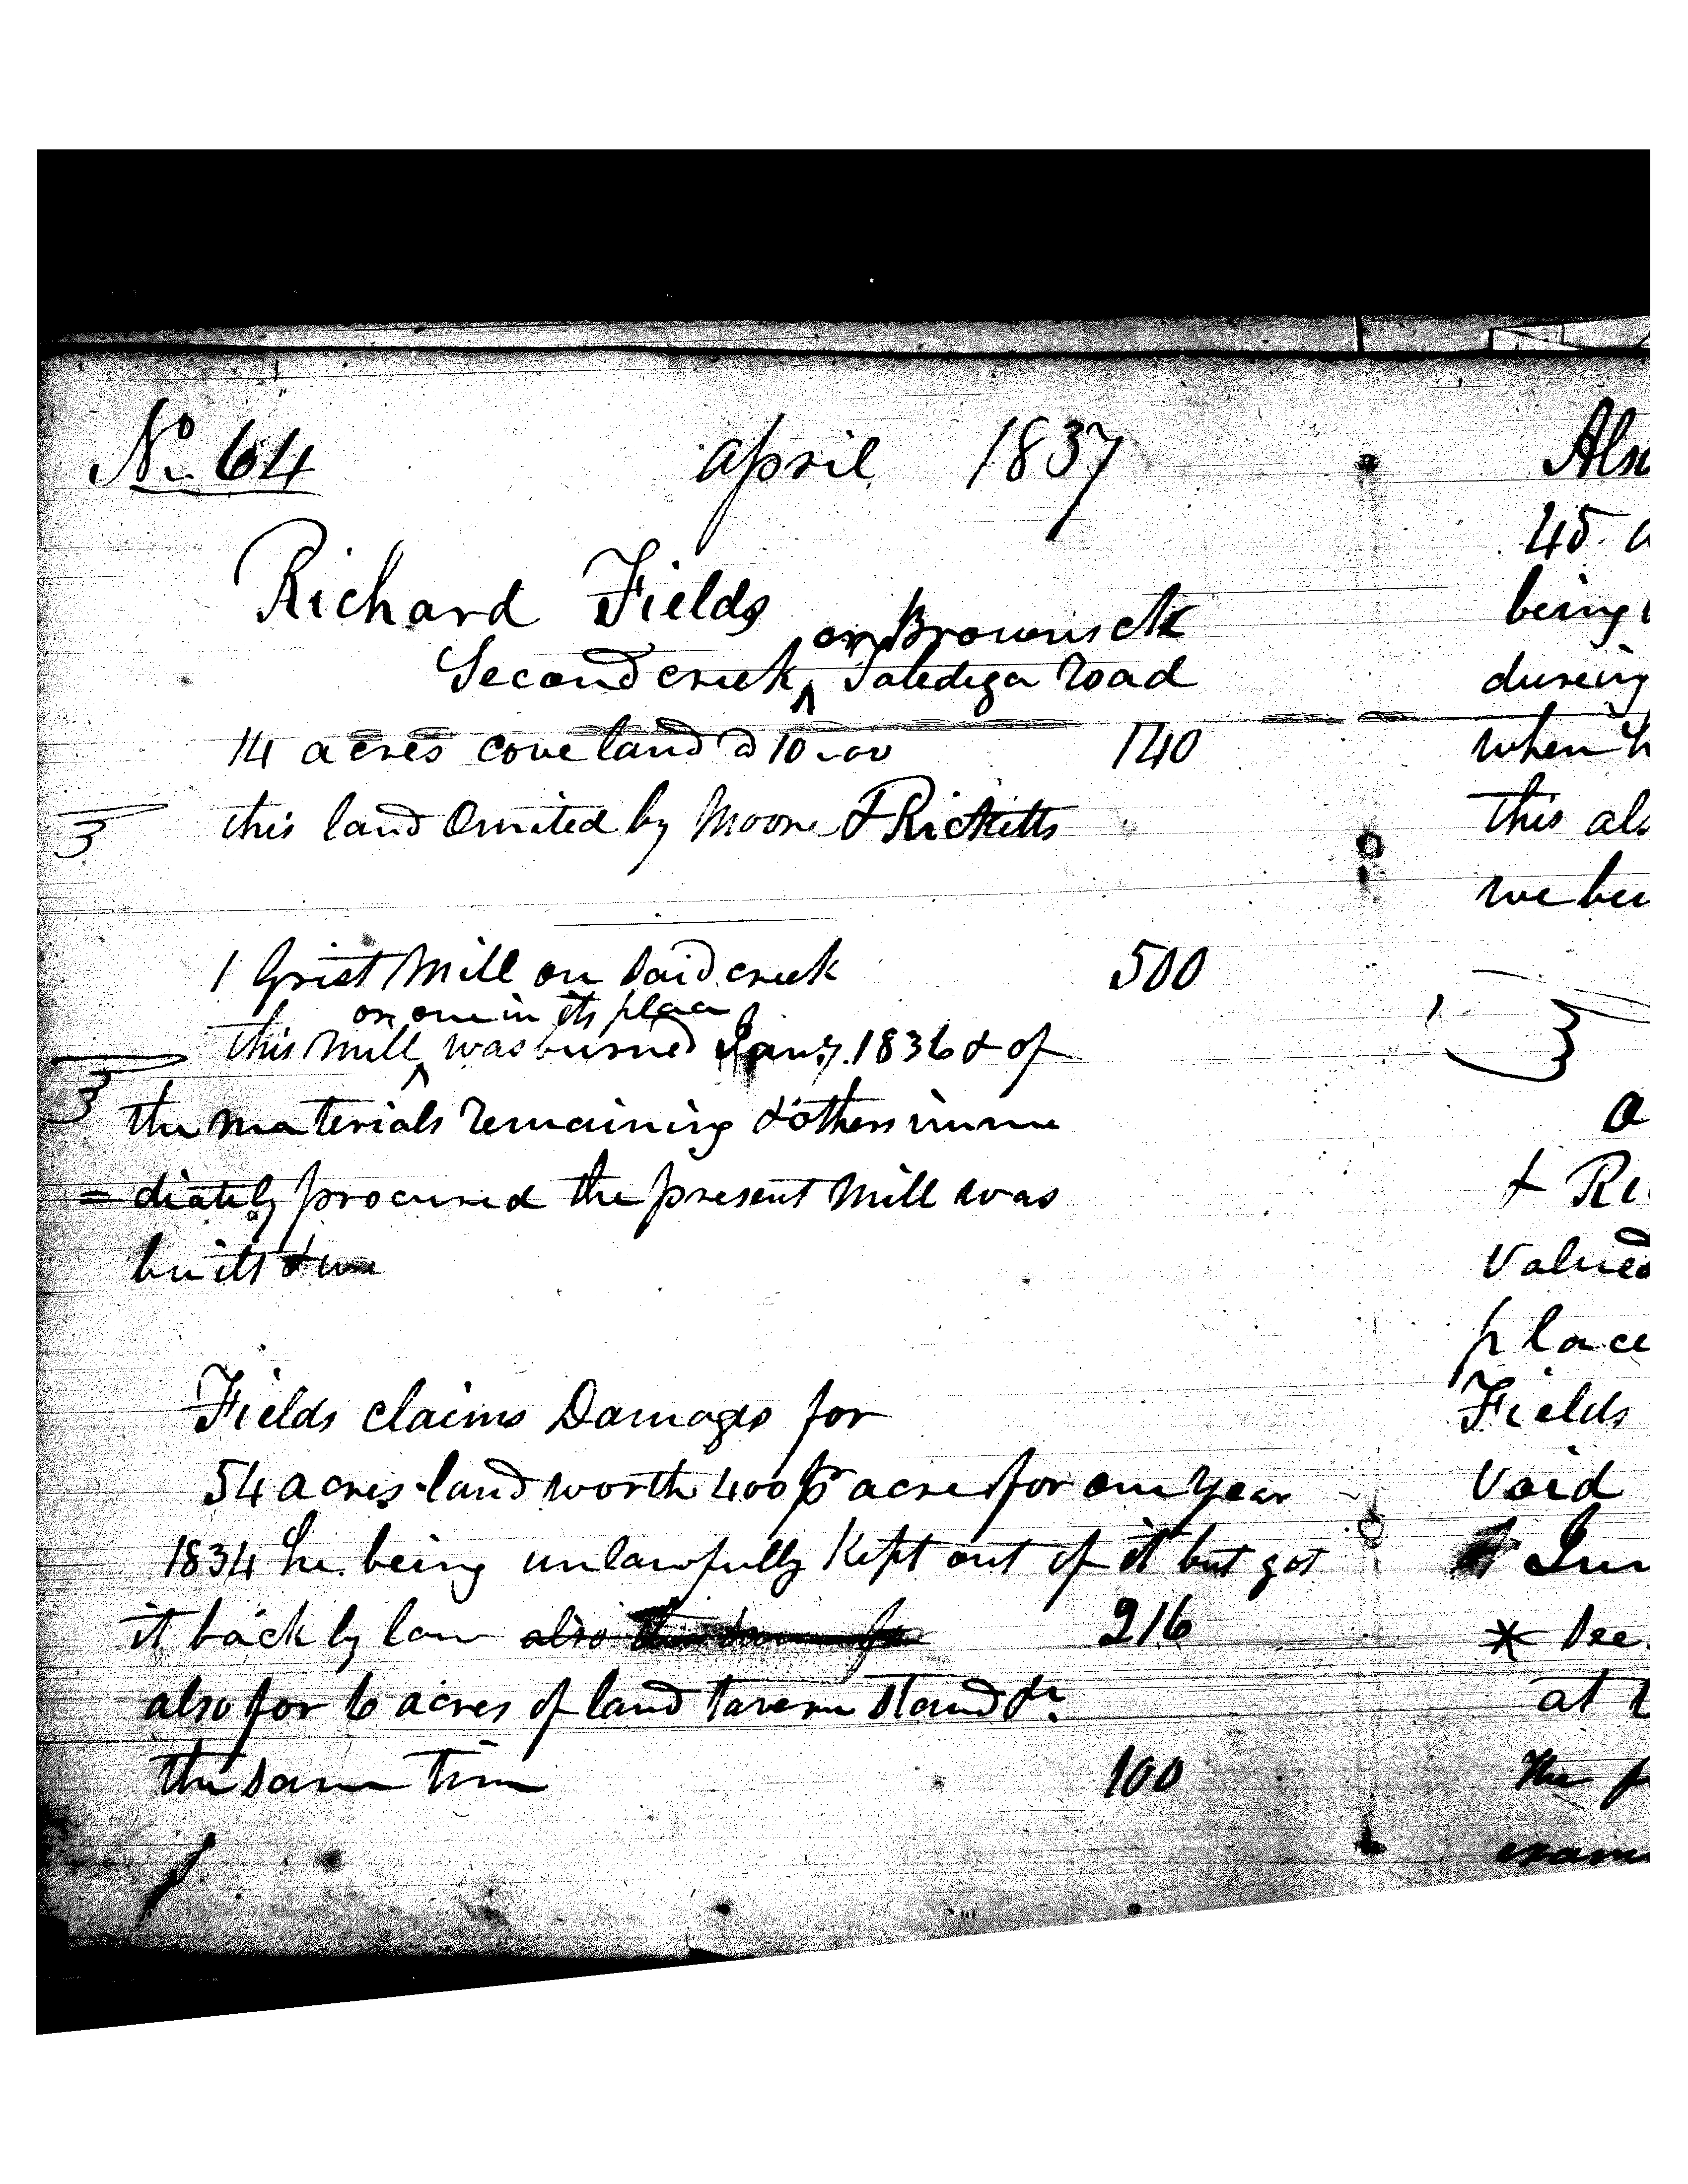 No 64 april 1837
Richard Fields
or Browns ck
Second creek Taledega road
14 acres cove land @ 10.00 140
this land Omited by Moore & Ricketts
1 Grist Mill on said creek 500
or one in its place
this mill was burned Jany. 1836 & of
the materials remaining & others imme
= diately procured the present mill was
built
Fields claims Damages for
54 acres land worth 400 pr acre for one year
1834 he being unlawfully Kept out of it but got
it back by law also 216
also for 6 acres of land tavern stand &c
the same time 100
Als
45 a
being
dureing
when h
this als
we
a
& Ri
Valued
place
Fields
Void
* See
at
the p
exam